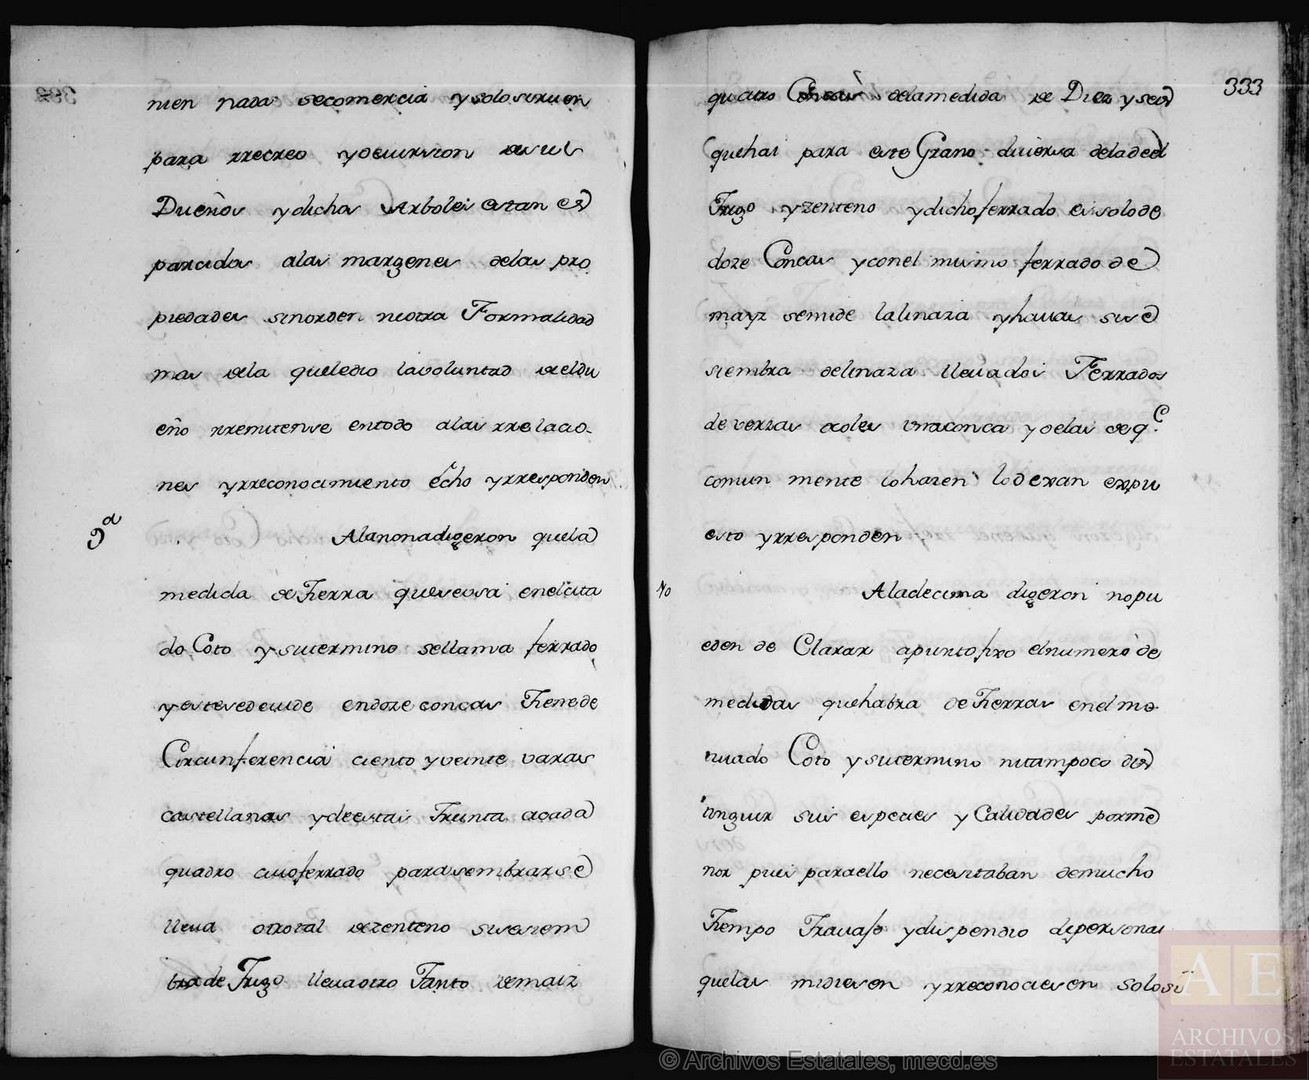 nien nada secomercia ysolosiruen
para rrecreo ydeuirsion desus
Dueños ydichos Arboles estan es
parcidos alas margenes delas pro
piedades sinorden niotra Formalidad
mas dela queledio lavoluntad deeldu
eño rremitense entodo alas rrelacio-
nes yrreconocimiento Echo yrresponden
9a Alanonadigeron quela
medida de Tierra queseusa enelcita
do Coto ysutermino sellama ferrado
yestesedeuide endoze concas Tienede
Circunferencia ciento yveinte varas
castellanas ydeestas Treinta acada
quadro cuioferrado parasembrarse
lleua otrotal dezenteno sisesiem
bra de Trigo lleuaotro Tanto demaiz
333
quatro Concas delamedida de Diez yseis
quehai para este Grano diuersa deladeel
Trigo yzenteno ydichoferrado essolode
doze Concas yconel mismo ferrado de
mayz semide lalinaza yhauas sise
siembra delinaza lleuados Ferrados
de verzas coles vnaconca ydelas deqe
comun mente lohazen lodexan expu
esto yrresponden
10 Aladecima digeron nopu
eden de Clarar apuntofixo elnumero de
medidas quehabra de Tierras enelmo-
tiuado Coto ysutermino nitampoco dis
tinguir sus especies y Calidades porme
nor pues paraello necesitaban demucho
Tiempo Trauajo ydispendio depersonas
quelas midiesen yrreconociesen solosi
© Archivos Estatales, mecd.es
AE
ARCHIVOS
ESTATALES